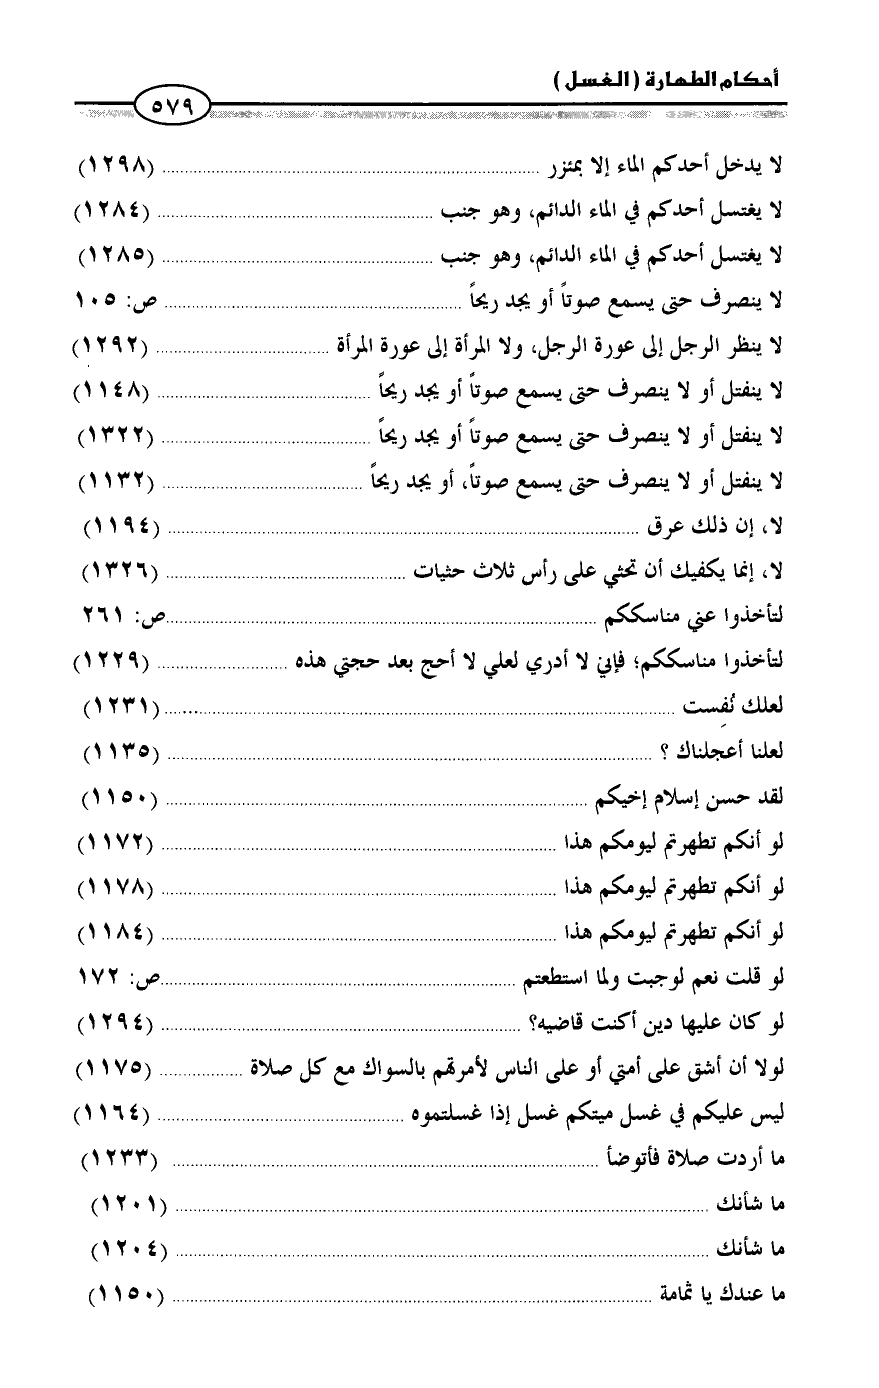 أحكام الطهارة (الغسل)
٥٧٩
لا يدخل أحدكم الماء إلا بمئزر ........ (١٢٩٨)
لا يغتسل أحدكم في الماء الدائم، وهو جنب ........ (١٢٨٤)
لا يغتسل أحدكم في الماء الدائم، وهو جنب ........ (١٢٨٥)
لا ينصرف حتى يسمع صوتاً أو يجد ريحاً ........ ص: ١٠٥
لا ينظر الرجل إلى عورة الرجل، ولا المرأة إلى عورة المرأة ........ (١٢٩٢)
لا ينفتل أو لا ينصرف حتى يسمع صوتاً أو يجد ريحاً ........ (١١٤٨)
لا ينفتل أو لا ينصرف حتى يسمع صوتاً أو يجد ريحاً ........ (١٣٢٢)
لا ينفتل أو لا ينصرف حتى يسمع صوتاً، أو يجد ريحاً ........ (١١٣٢)
لا، إن ذلك عرق ........ (١١٩٤)
لا، إنما يكفيك أن تحثي على رأس ثلاث حثيات ........ (١٣٢٦)
لتأخذوا عني مناسككم ........ ص: ٢٦١
لتأخذوا مناسككم؛ فإني لا أدري لعلي لا أحج بعد حجتي هذه ........ (١٢٢٩)
لعلك نُفِست ........ (١٢٣١)
لعلنا أعجلناك ؟ ........ (١١٣٥)
لقد حسن إسلام إخيكم ........ (١١٥٠)
لو أنكم تطهرتم ليومكم هذا ........ (١١٧٢)
لو أنكم تطهرتم ليومكم هذا ........ (١١٧٨)
لو أنكم تطهرتم ليومكم هذا ........ (١١٨٤)
لو قلت نعم لوجبت ولما استطعتم ........ ص: ١٧٢
لو كان عليها دين أكنت قاضيه؟ ........ (١٢٩٤)
لولا أن أشق على أمتي أو على الناس لأمرتهم بالسواك مع كل صلاة ........ (١١٧٥)
ليس عليكم في غسل ميتكم غسل إذا غسلتموه ........ (١١٦٤)
ما أردت صلاة فأتوضأ ........ (١٢٣٣)
ما شأنك ........ (١٢٠١)
ما شأنك ........ (١٢٠٤)
ما عندك يا ثمامة ........ (١١٥٠)